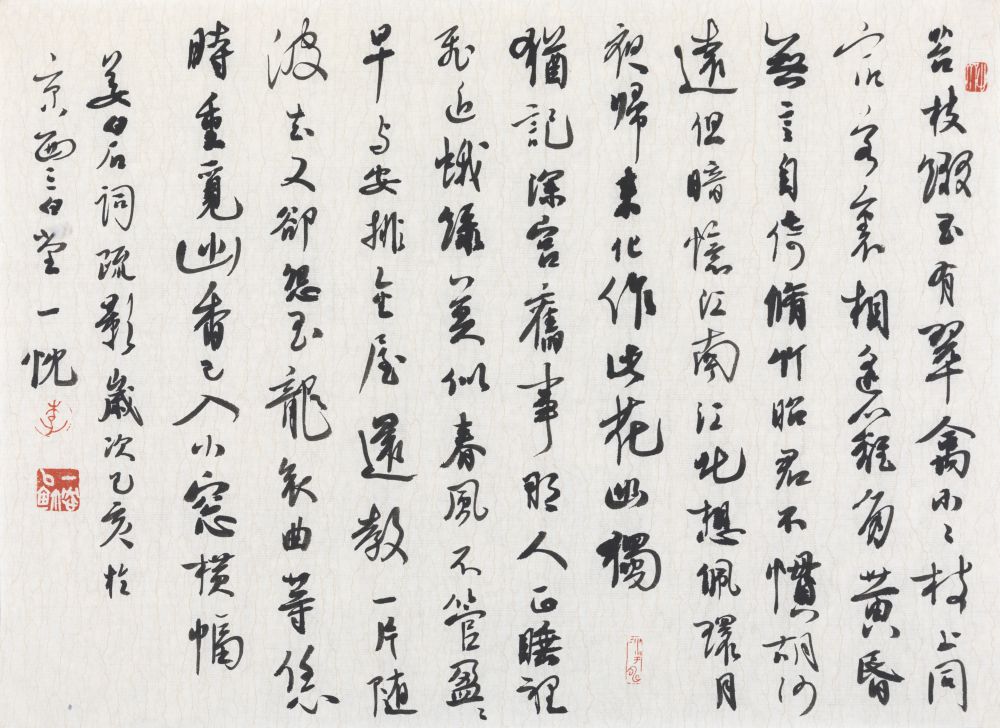 苔枝綴玉有翠禽小〻枝上同
宿客裏相逢籬角黄昏
無言自倚脩竹昭君不慣胡沙
遠但暗憶江南江北想佩環月
夜歸来化作此花幽獨
猶記深宮舊事那人正睡裡
飛近蛾緑莫似春風不管盈〻
早与安排金屋還教一片随
波去又卻怨玉龍哀曲等恁
時重覓幽香已入小窓横幅
姜白石詞疏影歲次乙亥於
京西三白堂一忱
李